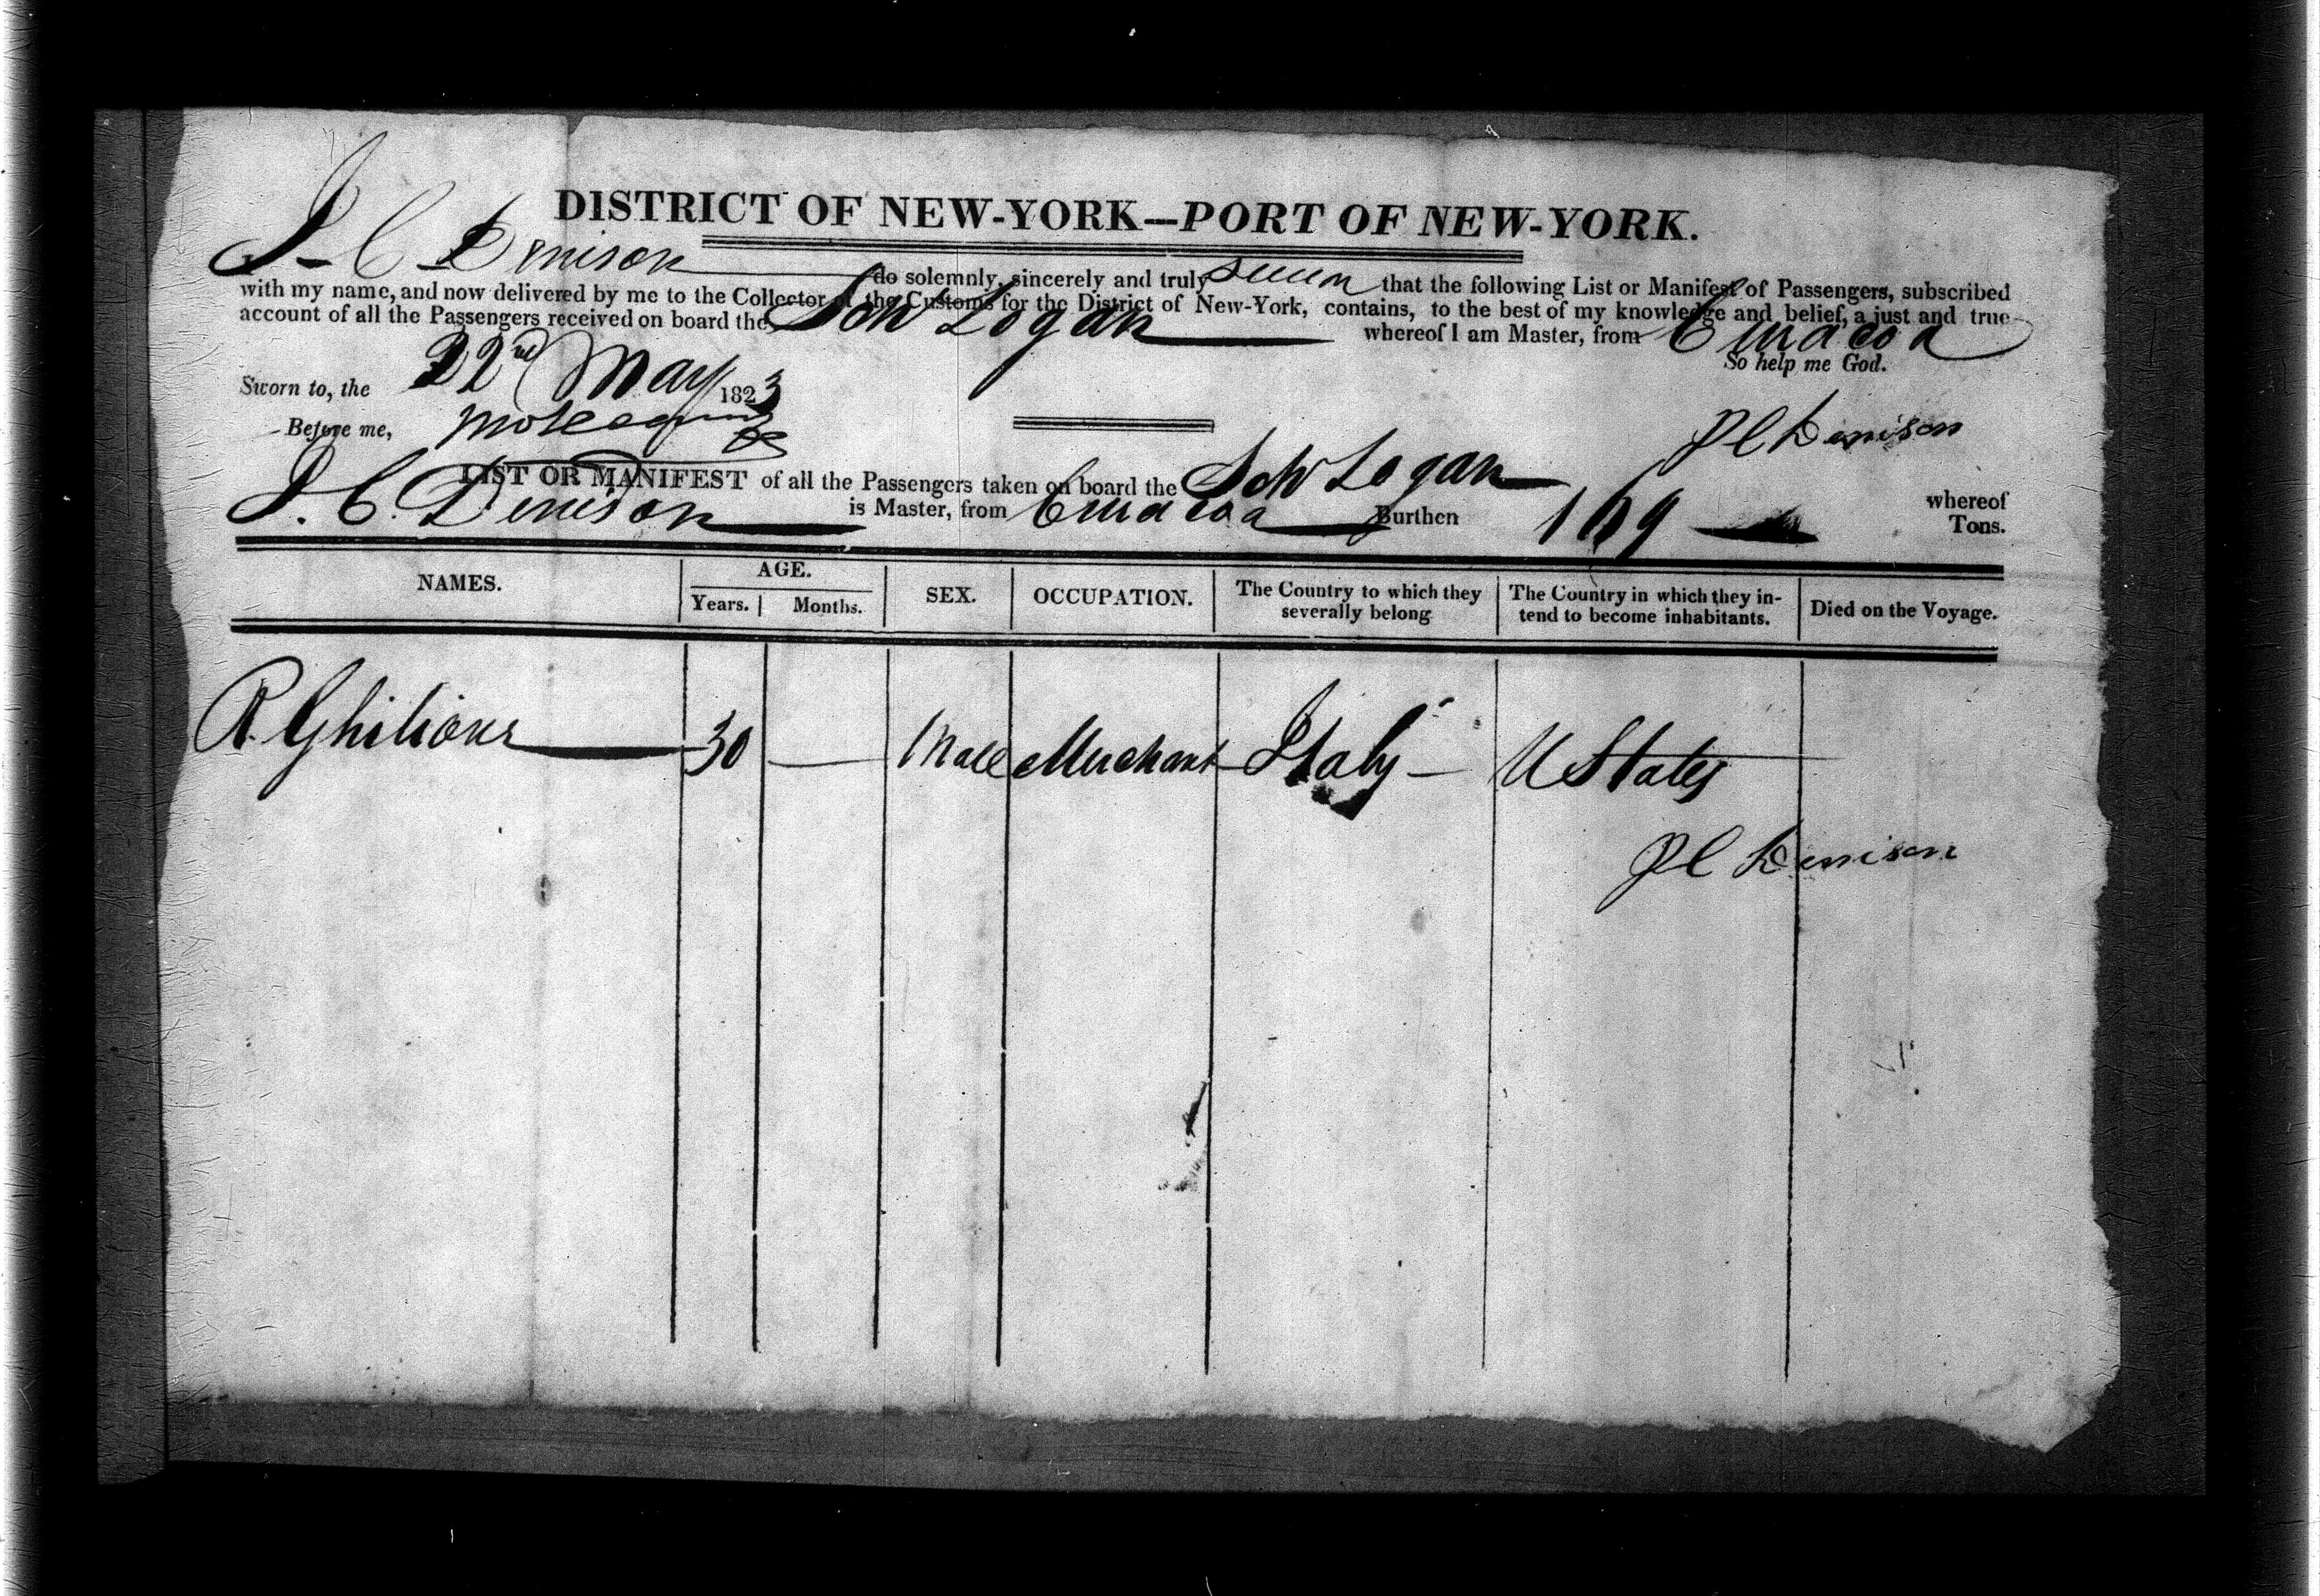 DISTRICT OF NEW-YORK—PORT OF NEW-YORK.
I C Denison do solemnly, sincerely and truly that the following List or Manifest of Passengers, subscribed
with my name, and now delivered by me to the Collector of the Customs for the District of New-York, contains, to the best of my knowledge and belief, a just and true
account of all the Passengers received on board the Sch Logan whereof I am Master, from Curacoa
So help me God.
Sworn to, the 22nd May 1823
Before me,
J C Denison
LIST OR MANIFEST of all the Passengers taken on board the Sch Logan whereof
J. C. Denison is Master, from Curacoa Burthen 169 Tons.
NAMES. AGE. Years. Months. SEX. OCCUPATION. The Country to which they severally belong The Country in which they intend to become inhabitants. Died on the Voyage.
R. Ghilions 30 — Male Merchant Italy — U States
J C Denison